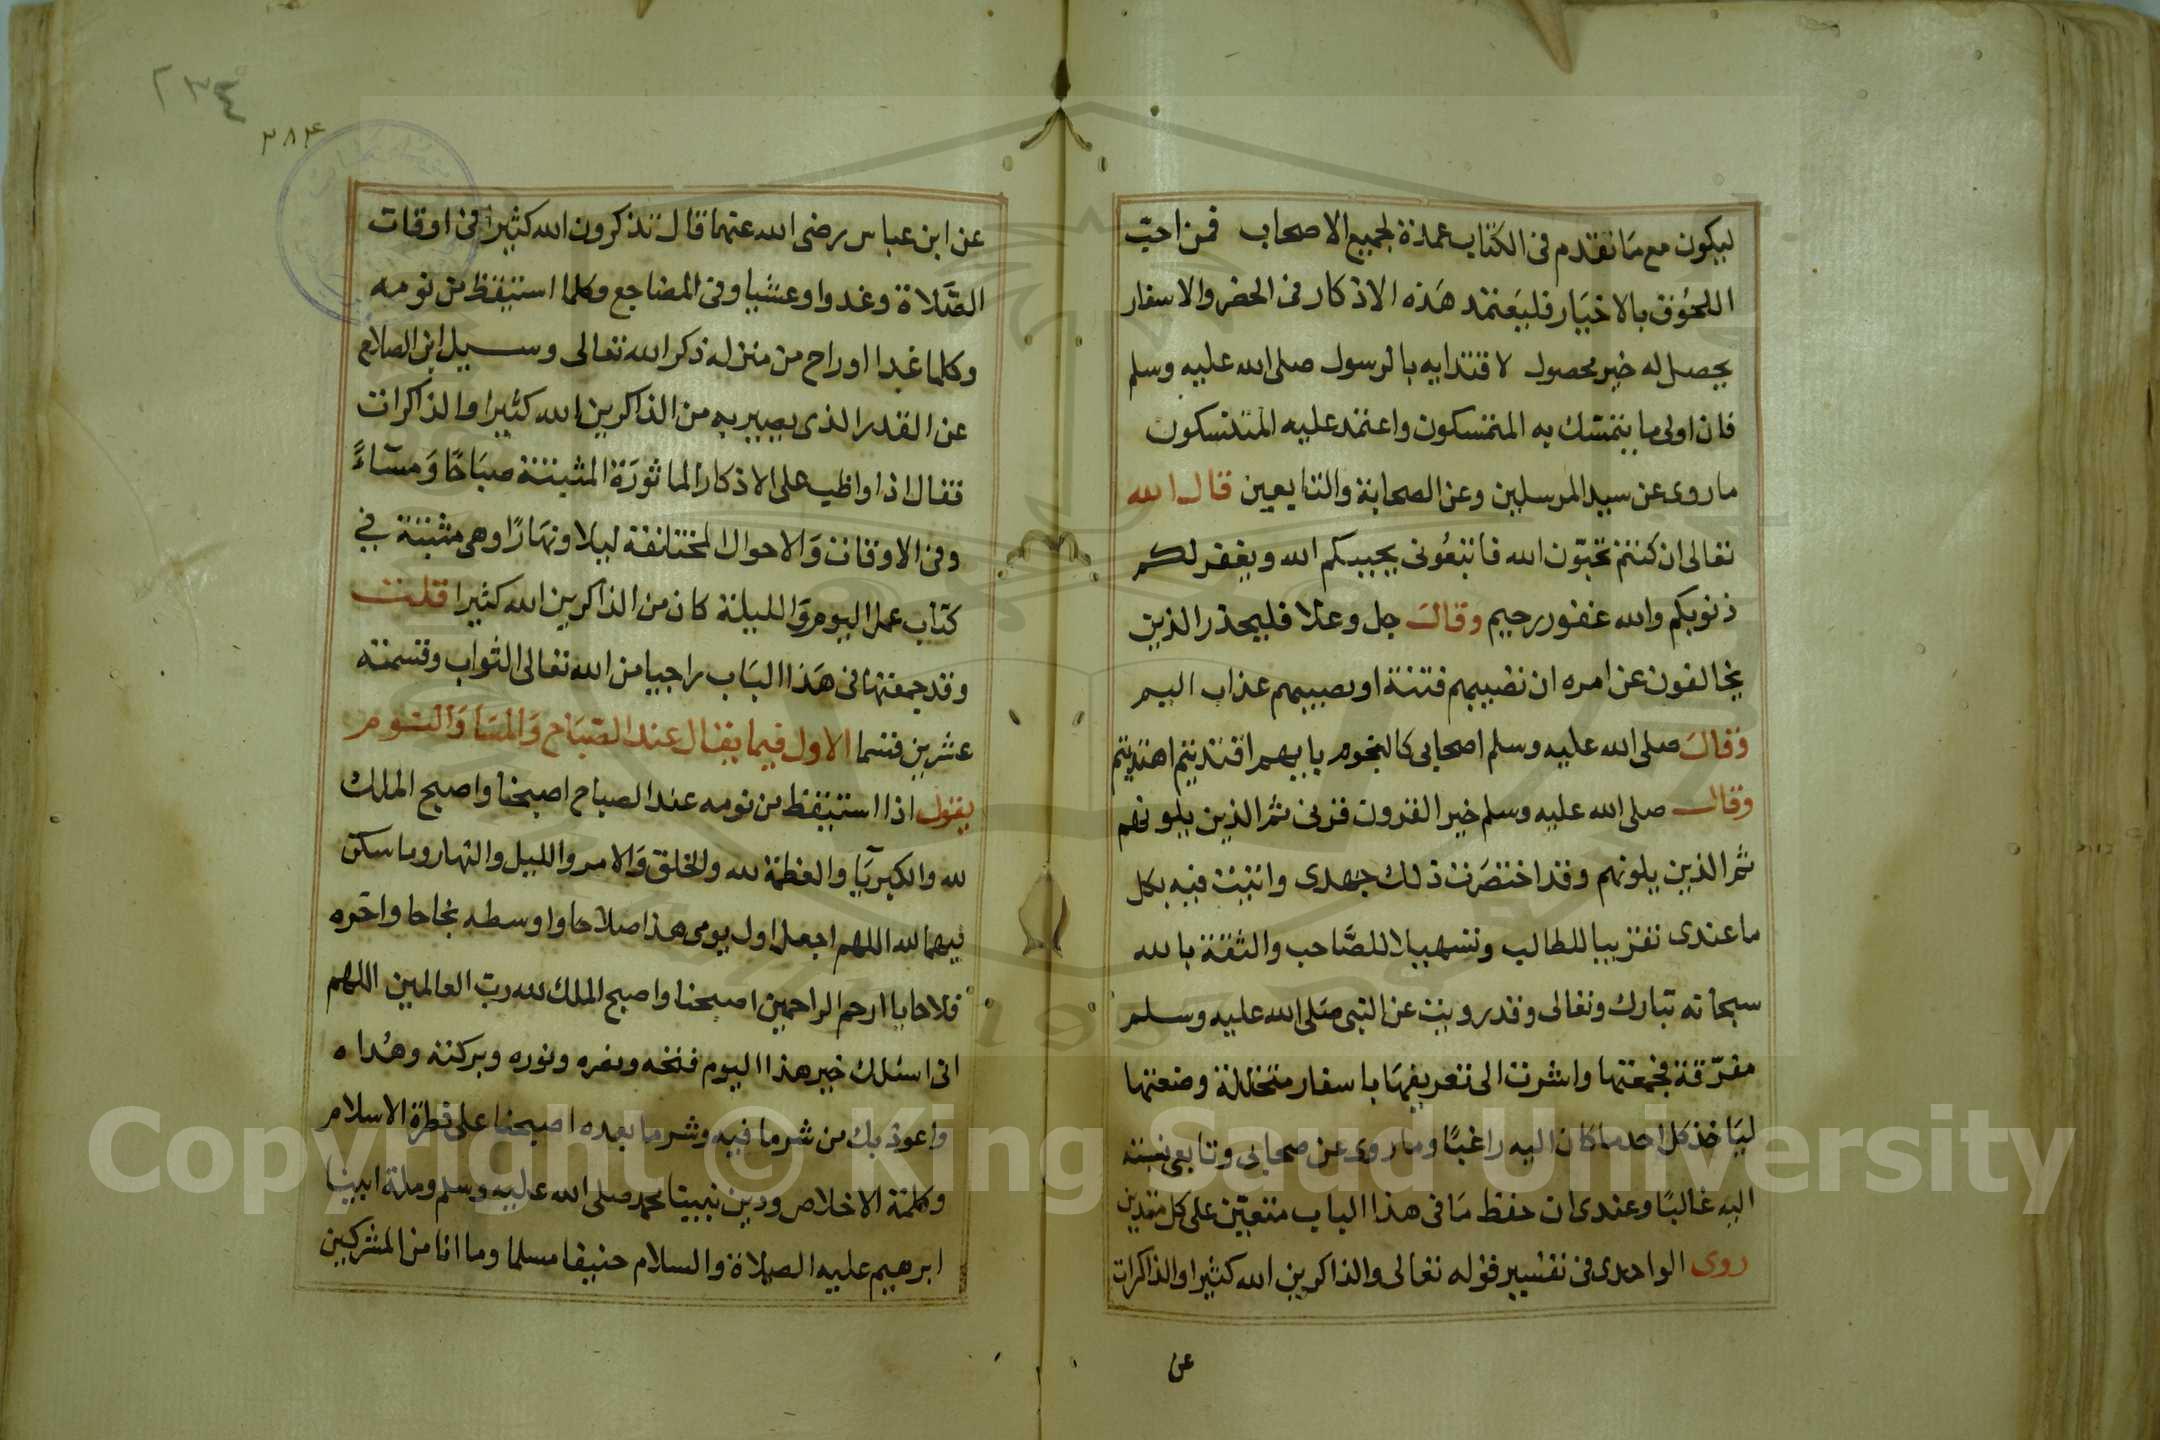 ليكون مع ما تقدم فى الكتاب عمدة لجميع الاصحاب فمن احبّ
اللحُوق بالاخيَار فليَعتمد هَذه الاذكار فى الحضر والاسفار
يحصل له خير محصول لاقتدايه بالرسول صلى الله عليه وسلم
فان اولى ما يتمسّك به المتمسكون واعتمد عليه المتنسكون
ما روى عن سيد المرسلين وعن الصحابة والتابعين قال الله
تعالى ان كنتم تحبّون الله فاتبعُونى يحببكم الله ويغفر لكم
ذنوبكم والله غفور رحيم وقالَ جل وعلا فليحذر الذين
يخالفون عن امره ان تصيبهم فتنة او يصيبهم عذاب اليم
وَقالَ صلى الله عليه وسلم اصحابى كالنجوم بايهم اقتديتم اهتديتم
وقال صلى الله عليه وسلم خير القرون قرنى ثم الذين يلونهم
ثم الذين يلونهم وقد اختصَرت ذلك جهدى واتيت فيه بكل
ما عندى تقريبا للطالب وتسهيلا للصَّاحب والثقة بالله
سبحانه تبارك وتعالى وقد رويت عن النبى صَلى الله عليه وسلم
مفرّقة فجمعتها واشرت الى تعريفهَا باسفار متخللة وضعتها
ليَاخذ كل احد ما كان اليه راغبًا وما روى عن صحابى وتابعى نسبته
اليه غالبًا وعندى ان حفظ مَا فى هذا الباب متعيّن على كل متدين
روى الواحدى فى تفسير قوله تعالى والذاكرين الله كثيرا والذاكرات
عن
٢٣٤
٣٨٤
عن ابن عباس رضى الله عنهما قال تذكرون الله كثيرا فى اوقات
الصَّلاة وغدوا وعشيا وفى المضاجع وكلما استيقظ من نومه
وكلما غدا او راح من منزله ذكر الله تعالى وسيل ابن الصلاح
عن القدر الذى يصير به من الذاكرين الله كثيرا والذاكرات
فقال اذا واظب على الاذكار الماثورَة المثبتة صبَاحًا وَمسآءً
وفى الاوقات وَالاحوال المختلفة ليلا ونهَارًا وهى مثبتة في
كتاب عمل اليوم وَالليلة كان من الذاكرين الله كثيرا قلت
وقد جمعتها فى هَذا البَاب راجيا من الله تعالى الثواب وقسمته
عشرين قسما الاول فيما يقال عند الصبَاح وَالمسَا وَالنوم
يقول اذا استيقظ من نومه عند الصباح اصبحنا واصبح الملك
لله والكبريَآ والعظمة لله والخلق وَالامر والليل والنهار وما سكن
فيهما لله اللهم اجعل اول يومى هذا صلاحا واوسطه نجاحا واخره
فلاحا يا ارحم الراحمين اصبحنا واصبح الملك لله ربّ العالمين اللهم
انى اسئلك خير هذا اليوم فتحه ونصره ونوره وبركته وهُداه
واعوذ بك من شر ما فيه وشر ما بعده اصبحنا على فطرة الاسلام
وكلمة الاخلاص ودين نبينا محمد صلى الله عليه وسلم وملة ابينا
ابرهيم عليه الصلاة والسلام حنيفا مسلما وما انا من المشركين
Copyright © King Saud University